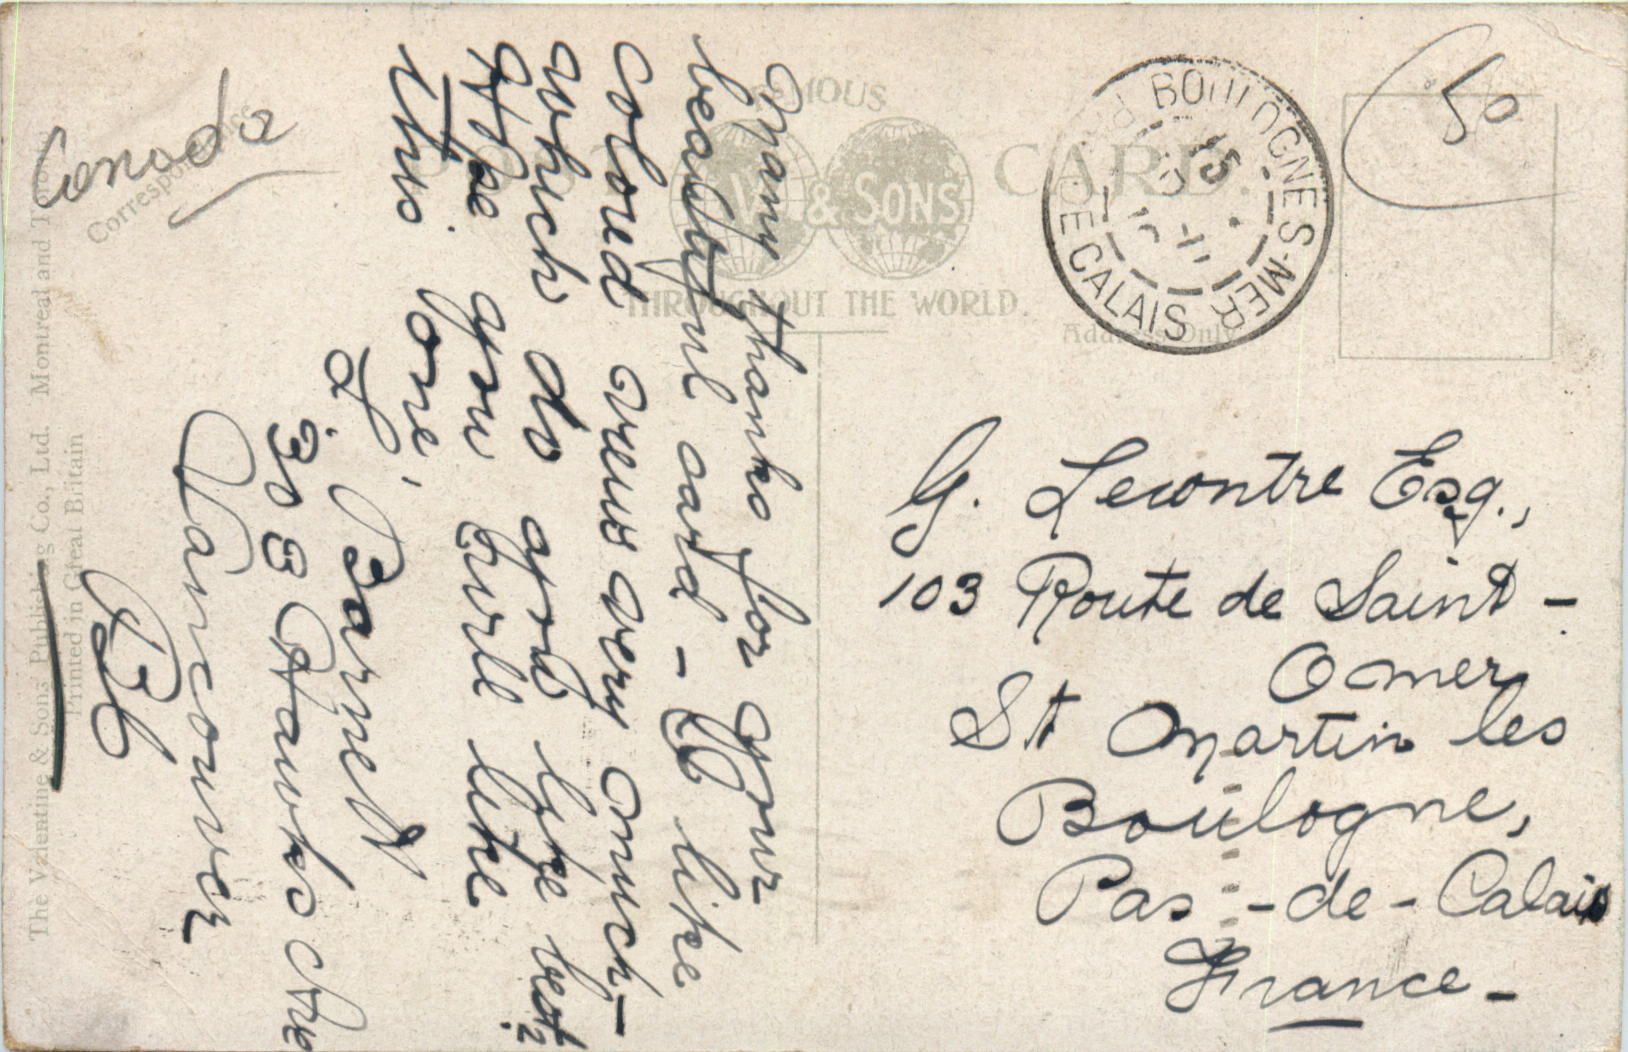 Many thanks for your
beautiful card - I like
colored views very much -
which do you like best?
Hope you will like
this one,
L. Barnett
3033 Hawks Ave
Vancouver
BC
Canada
Correspondence
FAMOUS
& SONS
CARD.
THROUGHOUT THE WORLD.
Address Only
BOULOGNE-S-MER
DE CALAIS
15
11
50
G. Lecontre Esq.,
103 Route de Saint-
Omer
St Martin les
Boulogne,
Pas-de-Calais
France-
The Valentine & Sons Publishing Co., Ltd. Montreal and Toronto
Printed in Great Britain